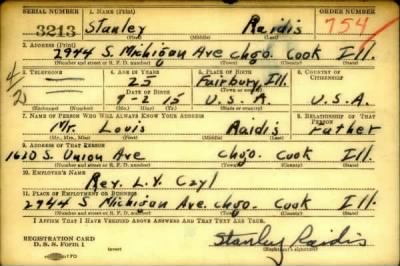 SERIAL NUMBER 1. NAME (Print) ORDER NUMBER
3213 Stanley Raidis 754
(First) (Middle) (Last)
2. ADDRESS (Print)
2944 S. Michigan Ave chgo. Cook Ill.
(Number and street or R. F. D. number) (Town) (County) (State)
3. TELEPHONE 4. AGE IN YEARS 5. PLACE OF BIRTH 6. COUNTRY OF CITIZENSHIP
25 Fairbury, Ill.
DATE OF BIRTH (Town or county)
9-2-15 U.S.A. U.S.A.
(Exchange) (Number) (Mo.) (Day) (Yr.) (State or country)
7. NAME OF PERSON WHO WILL ALWAYS KNOW YOUR ADDRESS 8. RELATIONSHIP OF THAT PERSON
Mr. Louis Raidis Father
(Mr., Mrs., Miss) (First) (Middle) (Last)
9. ADDRESS OF THAT PERSON
1620 S. Union Ave chgo. Cook Ill.
(Number and street or R. F. D. number) (Town) (County) (State)
10. EMPLOYER'S NAME
Rev. L. V. Czyl
11. PLACE OF EMPLOYMENT OR BUSINESS
2944 S Michigan Ave. chgo. Cook Ill.
(Number and street or R. F. D. number) (Town) (County) (State)
I AFFIRM THAT I HAVE VERIFIED ABOVE ANSWERS AND THAT THEY ARE TRUE.
REGISTRATION CARD
D. S. S. Form 1 Stanley Raidis
(Registrant's signature)